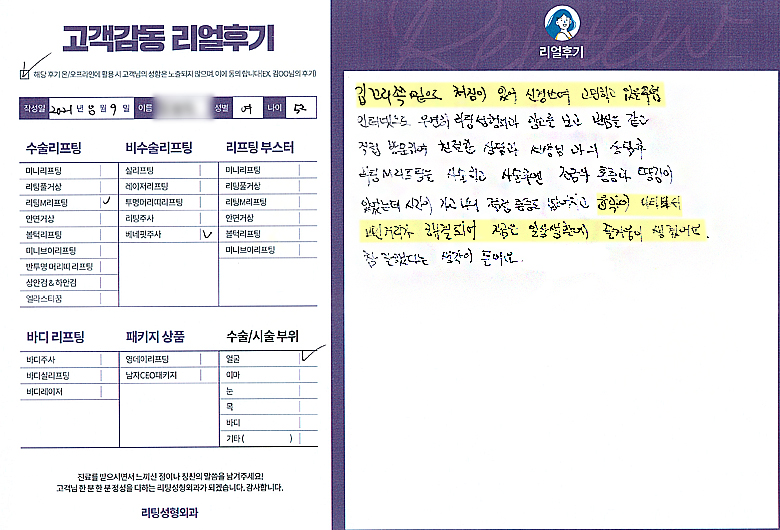 고객감동 리얼후기
해당 후기 온/오프라인에 활용 시 고객님의 성함은 노출되지 않으며, 이에 동의 합니다(EX. 김OO님의 후기)
작성일 2021년 8월 9일 이름 성별 여 나이 52
수술리프팅
미니리프팅
리팅풀거상
리팅M리프팅
안면거상
볼턱리프팅
미니브이리프팅
반투명 머리띠 리프팅
상안검 & 하안검
엘라스티꿈
비수술리프팅
실리프팅
레이저리프팅
투명머리띠리프팅
리팅주사
베네핏주사
리프팅 부스터
미니리프팅
리팅풀거상
리팅M리프팅
안면거상
볼턱리프팅
미니브이리프팅
바디 리프팅
바디주사
바디실리프팅
바디레이저
패키지 상품
영데이리프팅
남자CEO패키지
수술/시술 부위
얼굴
이마
눈
목
바디
기타 ( )
진료를 받으시면서 느끼신 정이나 칭찬의 말씀을 남겨주세요!
고객님 한 분 한 분 정성을 다하는 리팅성형외과가 되겠습니다. 감사합니다.
리팅성형외과
Review
리얼후기
입꼬리쪽 밑으로 처짐이 있어 신경쓰여 고민하고 있던중
인터넷으로 우연히 리팅성형외과 광고를 보고 믿음을 갖고
직접 방문하여 친절한 상담과 선생님과의 상담후
리팅 M리프팅을 시술하고 시술후엔 조금의 통증과 땡김이
있었는데 시간이 가고 나니 적정 통증도 없어지고 효과이 나타나서
고민거리가 해결되어 지금은 일상생활에 즐거움이 생겼어요.
참 잘했다는 생각이 들어요.